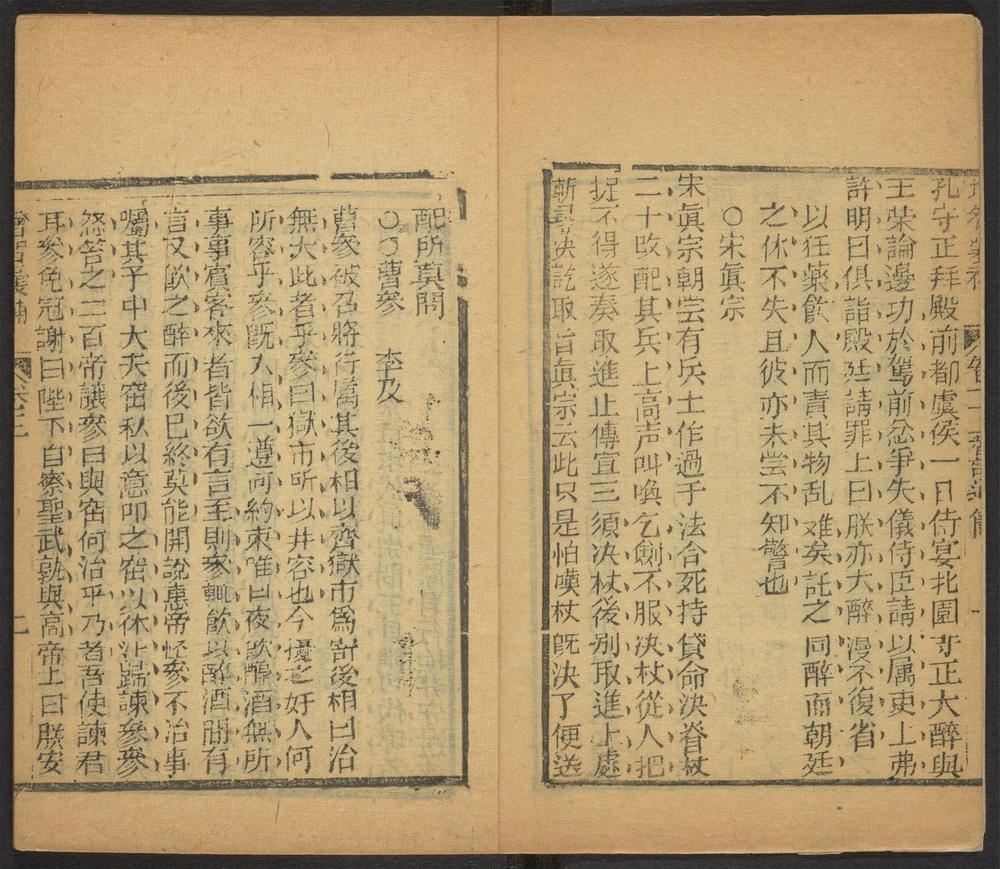 孔守正拜殿前都虞侯一日侍宴北園守正大醉與
王荣論邊功於駕前忿爭失儀侍臣請以属吏上弗
許明曰俱詣殿廷請罪上曰朕亦大醉漫不復省
以狂藥飲人而責其物乱难矣託之同醉而朝廷
之体不失且彼亦未尝不知警也
○宋真宗
宋真宗朝尝有兵士作過于法合死持貸命决脊杖
二十改配其兵士高声叫喚乞劍不服决杖從人把
捉不得遂奏取進止傳宣云須决杖後别取進止處
斬尋决訖取旨真宗云此只是怕嘆杖既决了便送
配所莫問
○○曹參 李及
曹參被召將行属其後相以齊獄市爲寄後相曰治
無大此者乎參曰獄市所以并容也今擾之奸人何
所容乎參既入相一遵何約束唯日夜飲醇酒無所
事事賓客來者皆欲有言至則參輒飲以醇酒間有
言又飲之醉而後已終莫能開說惠帝怪參不治事
嘱其子中大夫窋私以意叩之窋以休沐歸諫參參
怒笞之二百帝讓參曰與窋何治乎乃者吾使諫君
耳參免冠謝曰陛下自察聖武孰與高帝上曰朕安